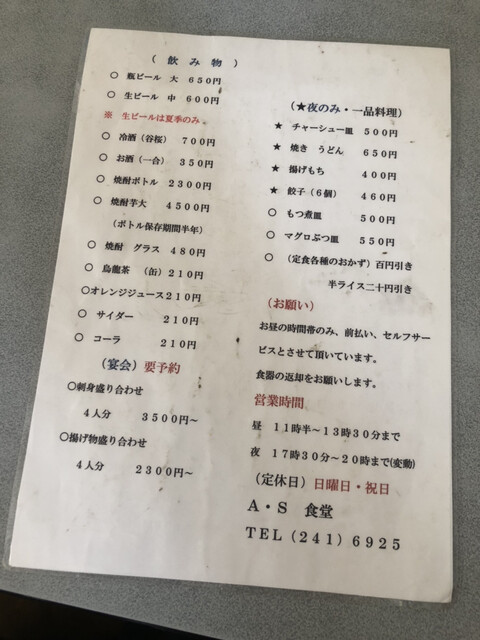 (飲み物)
○ 瓶ビール 大 650円
○ 生ビール 中 600円
※ 生ビールは夏季のみ
○ 冷酒(谷桜) 700円
○ お酒(一合) 350円
○ 焼酎ボトル 2300円
○ 焼酎芋大 4500円
(ボトル保存期間半年)
○ 焼酎 グラス 480円
○ 烏龍茶 (缶)210円
○オレンジジュース210円
○ サイダー 210円
○ コーラ 210円
(宴会)要予約
○刺身盛り合わせ
4人分 3500円~
○揚げ物盛り合わせ
4人分 2300円~
(★夜のみ・一品料理)
★ チャーシュー皿 500円
★ 焼き うどん 650円
★ 揚げもち 400円
★ 餃子(6個) 460円
○ もつ煮皿 500円
○ マグロぶつ皿 550円
○ (定食各種のおかず)百円引き
半ライス二十円引き
(お願い)
お昼の時間帯のみ、前払い、セルフサー
ビスとさせて頂いています。
食器の返却をお願いします。
営業時間
昼 11時半~13時30分まで
夜 17時30分~20時まで(変動)
(定休日)日曜日・祝日
A・S 食堂
TEL(241)6925